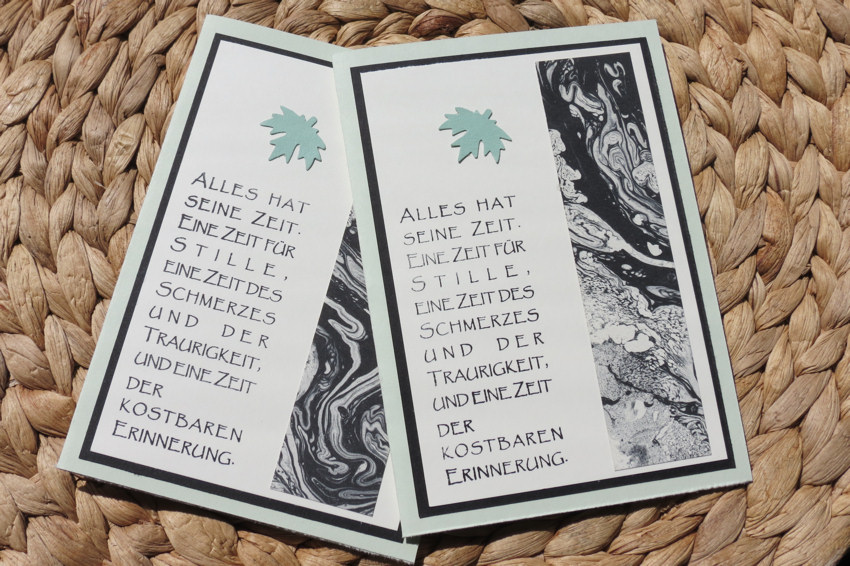 ALLES HAT
SEINE ZEIT.
EINE ZEIT FÜR
STILLE,
EINE ZEIT DES
SCHMERZES
UND DER
TRAURIGKEIT,
UND EINE ZEIT
DER
KOSTBAREN
ERINNERUNG.
ALLES HAT
SEINE ZEIT.
EINE ZEIT FÜR
STILLE,
EINE ZEIT DES
SCHMERZES
UND DER
TRAURIGKEIT,
UND EINE ZEIT
DER
KOSTBAREN
ERINNERUNG.